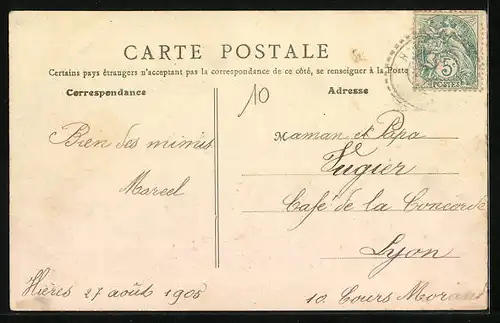 CARTE POSTALE
Certains pays étrangers n'acceptant pas la correspondance de ce côté, se renseigner à la Poste
Correspondance
10
Adresse
5c
POSTES
Bien des mimis
Marcel
Maman et Papa
Fugier
Café de la Concorde
Lyon
10. Cours Morand
Hières 27 août 1905